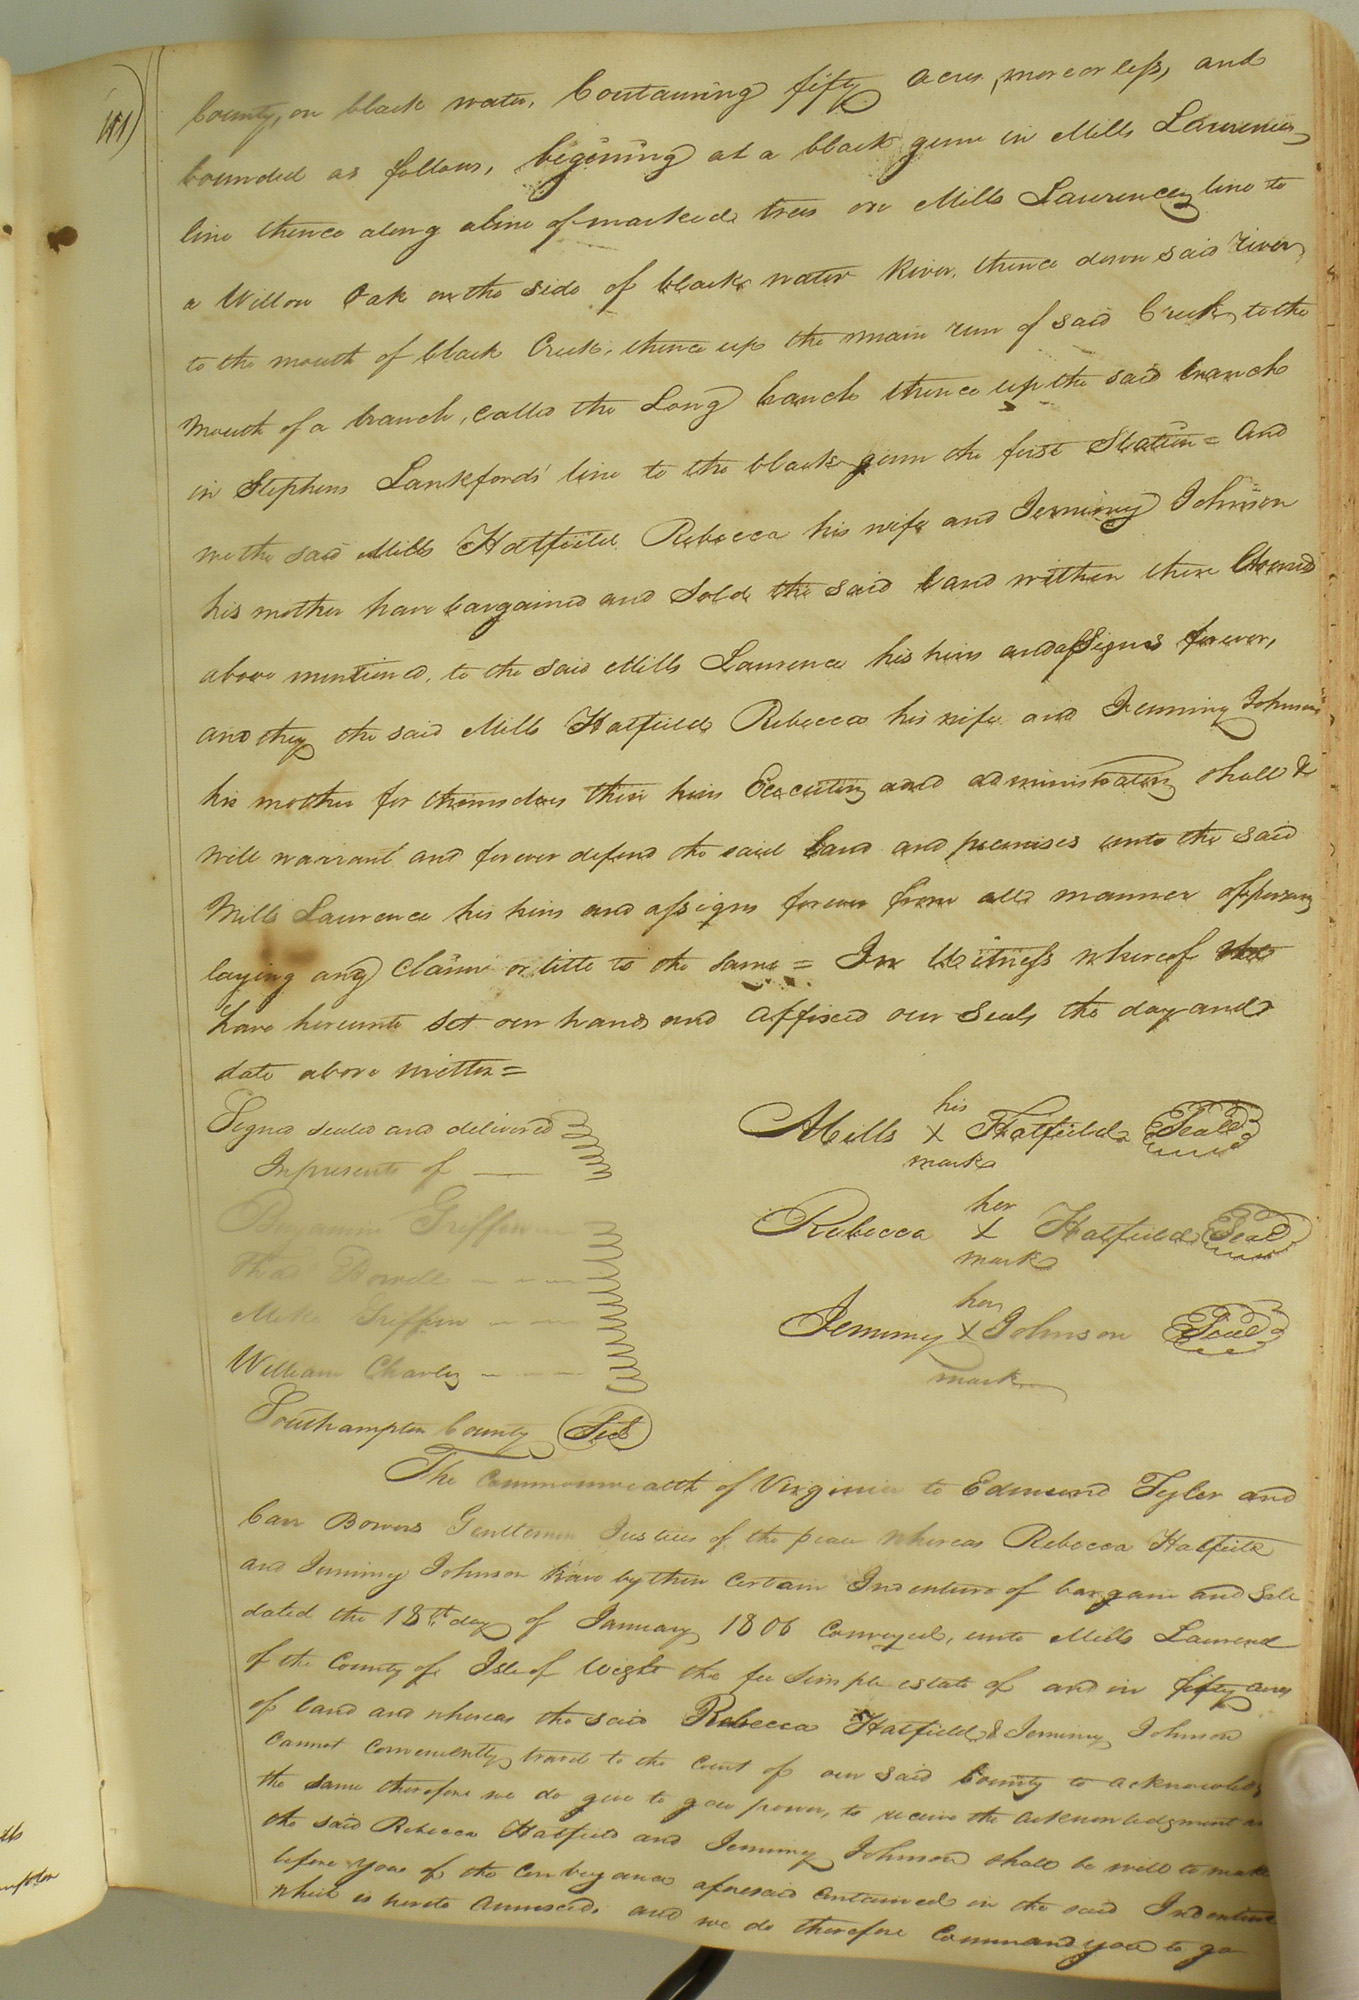 County, on black water, Containing fifty acres, more or less, and
bounded as follows, begining at a black gum in Mills Laurences
line thence along a line of marked trees on Mills Laurences line to
a Willow Oak on the side of black water River, thence down said River
to the mouth of black Creek, thence up the main run of said Creek, to the
Mouth of a branch, called the Long branch thence up the said branch
in Stephens Lankfords line to the black gum the first Station = And
we the said Mills Hatfield Rebecca his wife and Jemimey Johnson
his mother have bargained and Sold the said land within there bound
above mentioned, to the said Mills Laurence his heirs and assigns forever,
and they the said Mills Hatfield Rebecca his wife and Jemimy Johnson
his mother for themselves their heirs Executors and administrators shall &
will warrant and forever defend the said land and premises unto the said
Mills Laurence his heirs and assigns forever from all manner of persons
laying any claim or title to the same = In Witness whereof
have hereunto set our hands and affixed our Seals the day and
date above written =
Signed sealed and delivered
In presents of
Mills his X mark Hatfield Seal
Benjamin Griffin
Rebecca her X mark Hatfield Seal
Thos Bowell
Mike Griffin
Jemimey her X mark Johnson Seal
William Charles
Southampton County Sct
The Commonwealth of Virginia to Edmund Tyler and
Carr Bowers Gentlemen Justices of the peace whereas Rebecca Hatfield
and Jemimy Johnson have by their certain Indenture of bargain and Sale
dated the 18th day of January 1806 Conveyed, unto Mills Laurence
of the County of Isle of Wight the fee Simple estate of and in fifty acres
of land and whereas the said Rebecca Hatfield & Jemimy Johnson
Cannot Conveniently travel to the Court of our said County to acknowledge
the same therefore we do give to you power, to receive the acknowledgment
the said Rebecca Hatfield and Jemimy Johnson shall be will to make
before you of the Conveyance aforesaid Contained in the said Indenture
which is hereto annexed. and we do therefore Command you to go